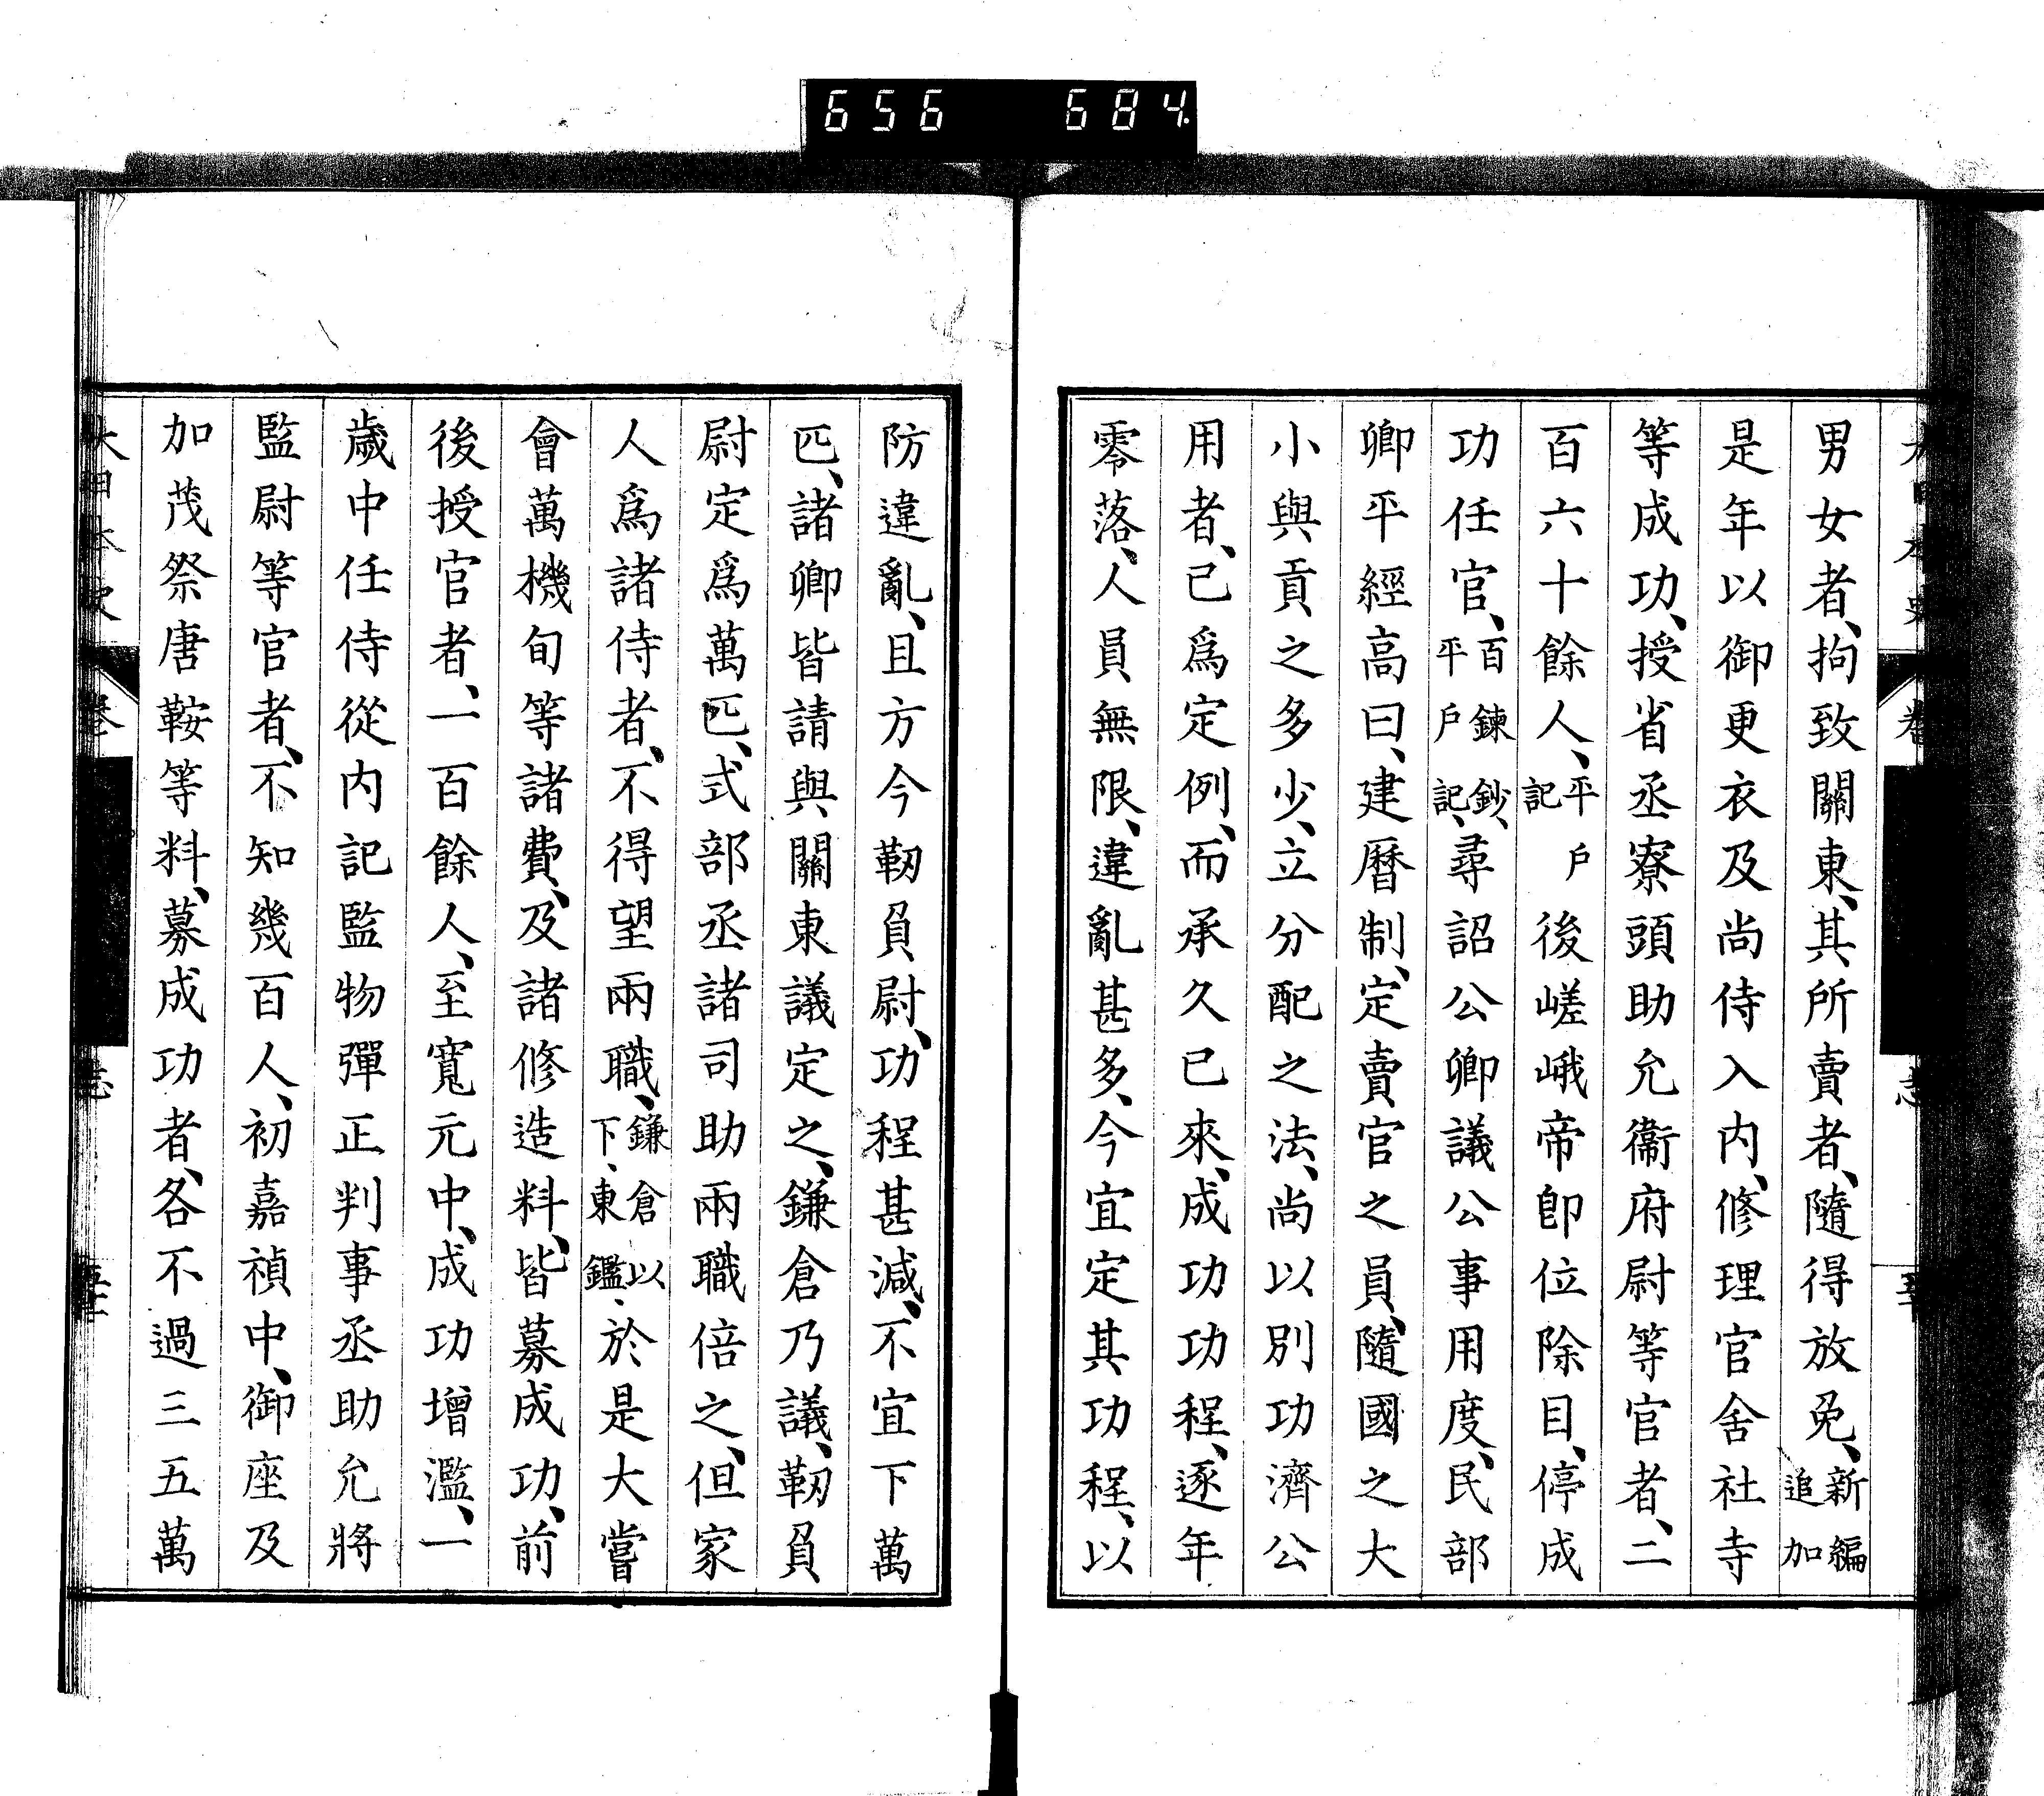 656 684
男女者、拘致關東、其所賣者、隨得放免、新編追加
是年以御更衣及尚侍入内、修理官舍社寺
等成功、授省丞寮頭助允衞府尉等官者、二
百六十餘人、平戶記後嵯峨帝卽位除目、停成
功任官、百鍊鈔、平戶記、尋詔公卿議公事用度、民部
卿平經高曰、建曆制、定賣官之員、隨國之大
小與貢之多少、立分配之法、尚以別功濟公
用者、已爲定例、而承久已來、成功功程、逐年
零落、人員無限、違亂甚多、今宜定其功程、以
防違亂、且方今靭負尉、功程甚減、不宜下萬
匹、諸卿皆請與關東議定之、鎌倉乃議、靭負
尉定爲萬匹、式部丞諸司助兩職倍之、但家
人爲諸侍者、不得望兩職、鎌倉以下、東鑑、於是大嘗
會萬機旬等諸費、及諸修造料、皆募成功、前
後授官者、一百餘人、至寬元中、成功增濫、一
歲中任侍從内記監物彈正判事丞助允將
監尉等官者、不知幾百人、初嘉禎中、御座及
加茂祭唐鞍等料、募成功者、各不過三五萬